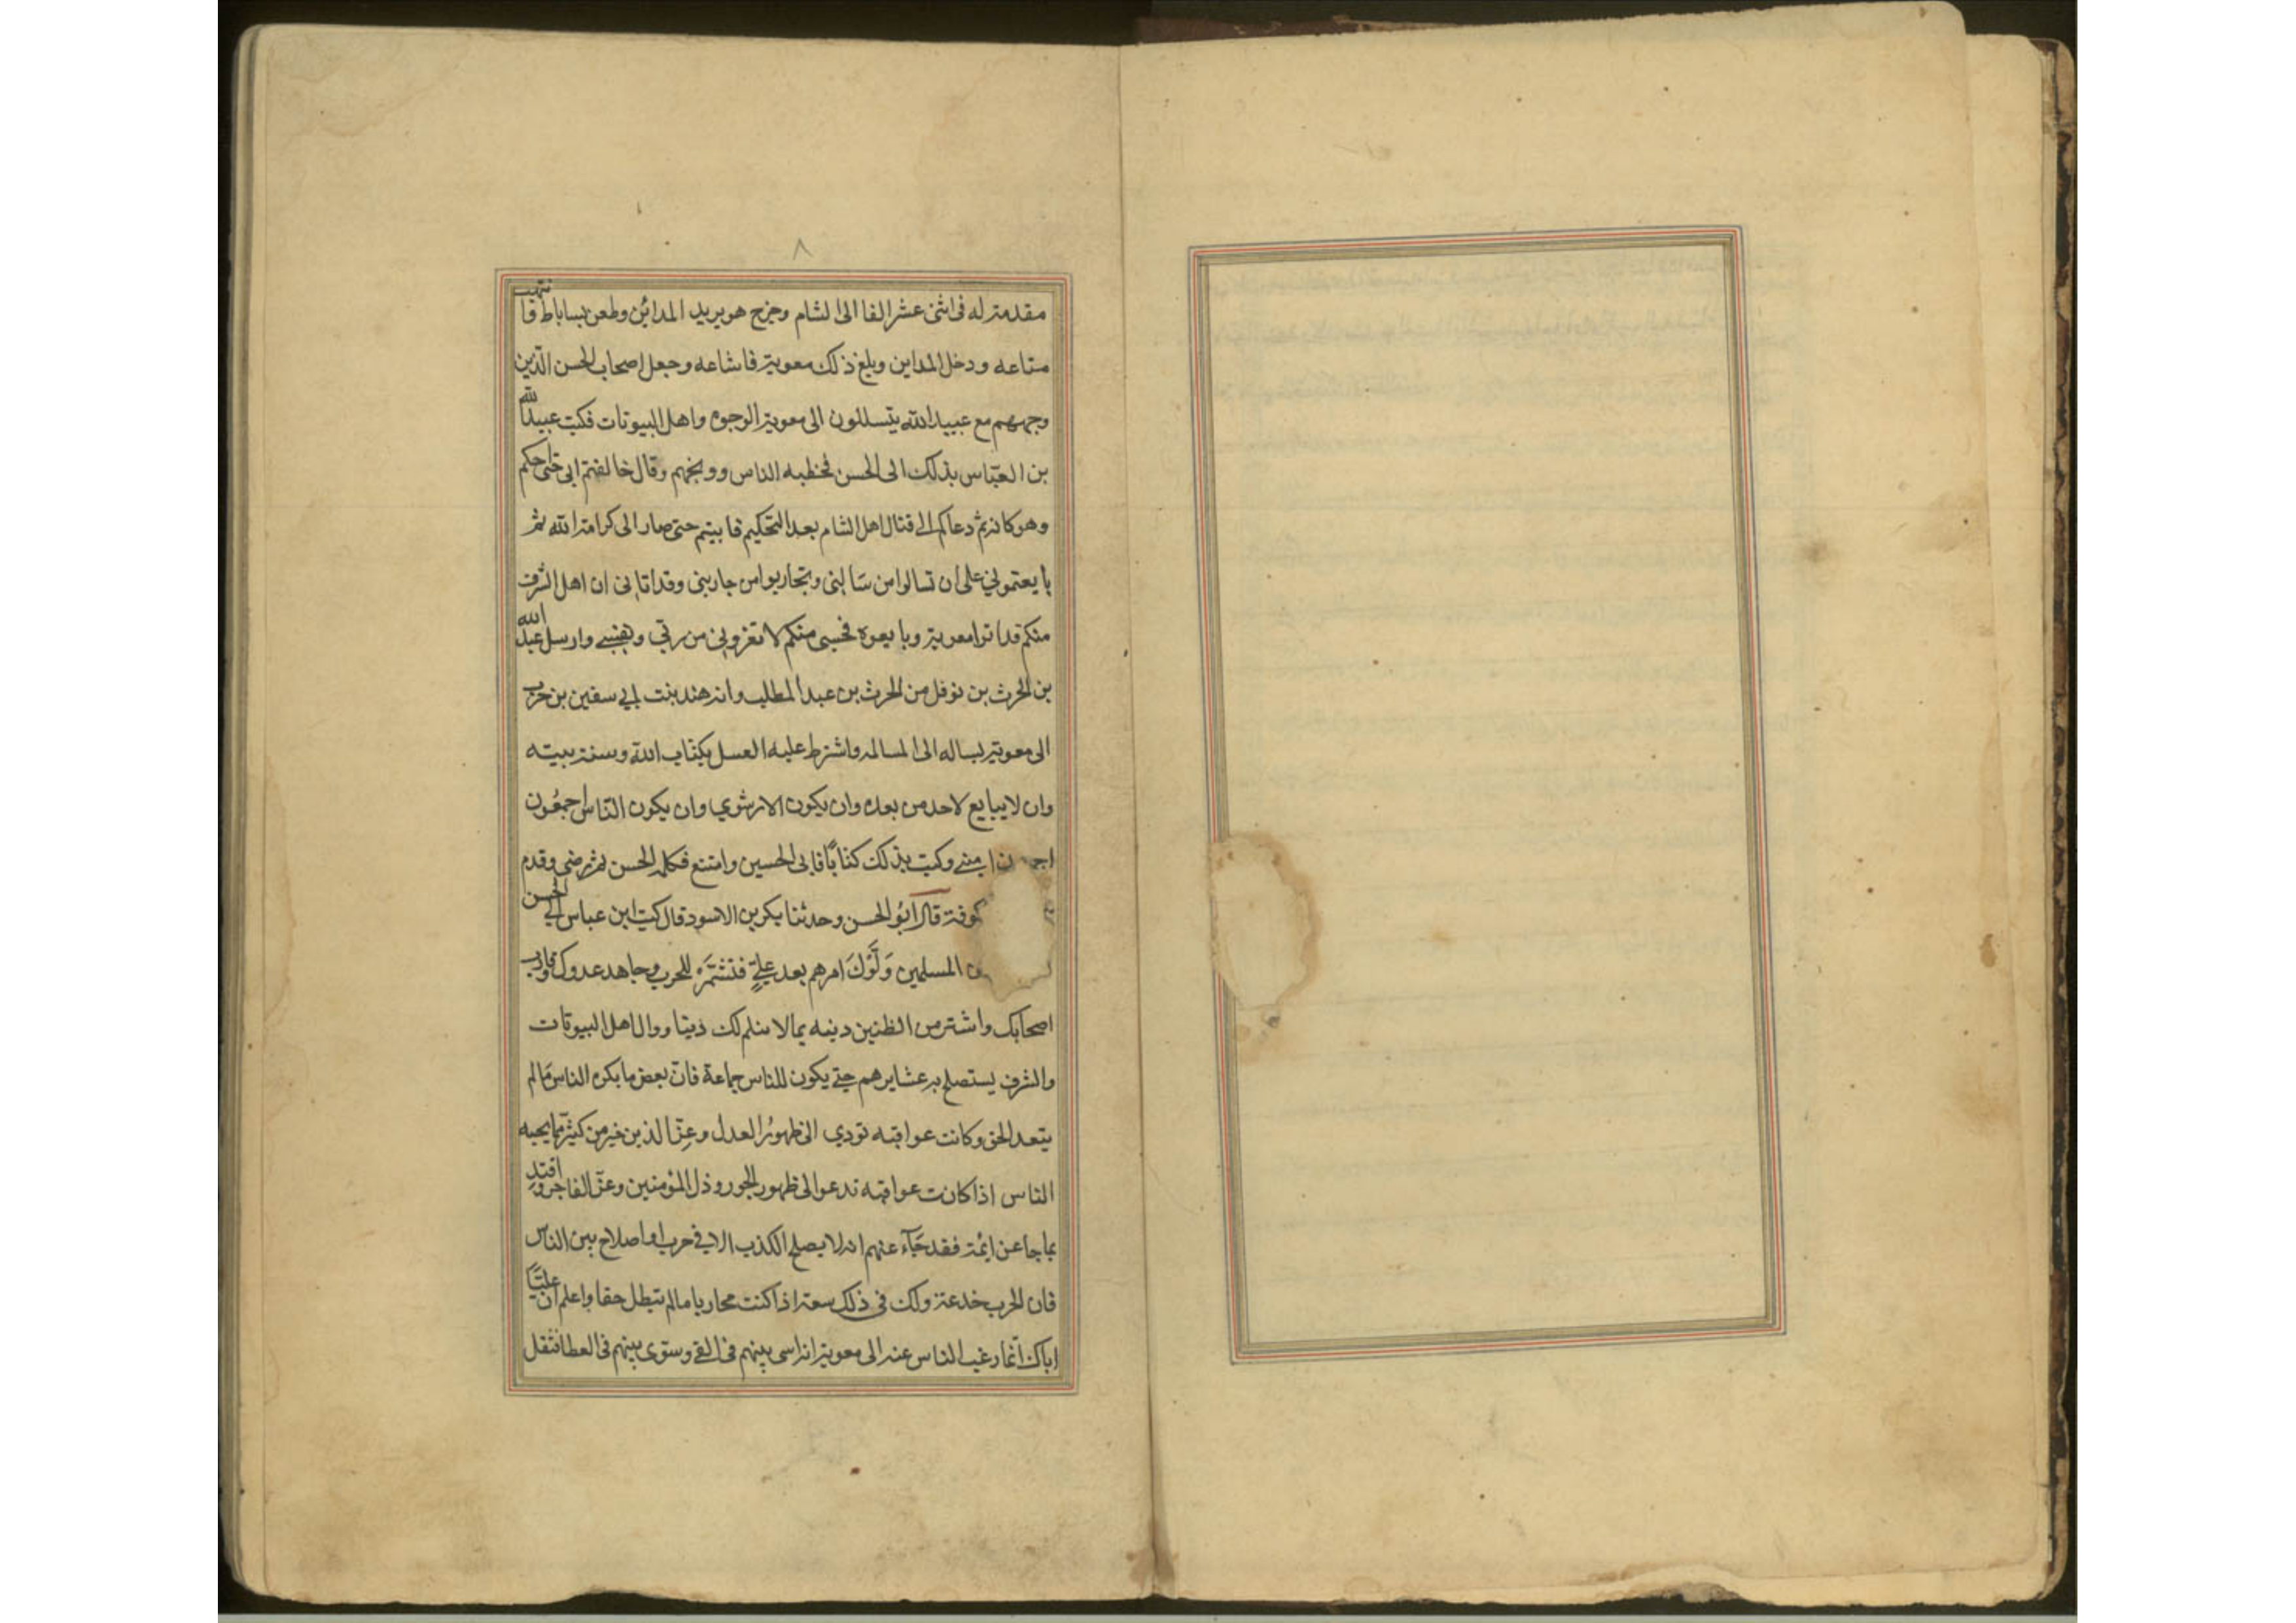 ٨
مقدمته له فى اثنى عشر الفا الى الشام وخرج هو يريد المداين وطعن بساباط فانتهب
متاعه ودخل المداين وبلغ ذلك معوية فاشاعه وجعل اصحاب الحسن الّذين
وجههم مع عبيد الله يتسللون الى معوية الوجوه واهل البيوتات فكتب عبيد الله
بن العبّاس بذلك الى الحسن فخطبه الناس ووبخهم وقال خالفتم ابى حتى حكم
وهو كاره ثم دعاكم الى قتال اهل الشام بعد التحكيم فابيتم حتى صار الى كرامة الله ثم
بايعتمونى على ان تسالموا من سالمنى وتحاربوا من حاربنى وقد اتانى ان اهل الشرف
منكم قد اتوا معوية وبايعوه فحسبى منكم لا تغرونى من ربى ونفسى وارسل عبد الله
بن الحرث بن نوفل من الحرث بن عبد المطلب وانه هند بنت ابى سفين بن حرب
الى معوية يساله الى المسالمه واشترط عليه العسل بكتاب الله وسنة نبيته
وان لا يبايع لاحد من بعده وان يكون الامر شوري وان يكون النّاس اجمعُون
امنين وكتب بذلك كتابًا فابى الحسين وامتنع فكلمه الحسن ثم رضى وقدم
كوفة قال ابُو الحسن وحدثنا بكر بن الاسود قال كتب ابن عباس الى الحسن
المسلمين وَلَّوْكَ امرهم بعد عليٍّ فتشمّره للحرب وجاهد عدوك وقارب
اصحابك واشتر من الظنين دينه بما لا يثلم لك دينا ووال اهل البيوتات
والشرف يستصلح به عشايرهم حتى يكون للناس جماعة فانّ بعض ما يكره الناس مَا لم
يتعد الحق وكانت عواقبه تودي الى ظهُور العدل وعِزّ الذين خير من كثير مما يحبه
الناس اذا كانت عواقبه تدعو الى ظهور الجور وذل المؤمنين وعزّ الفاجر واقتدِ
بما جا عن ائمة فقد جَآء عنهم انه لا يصلح الكذب الا فى حرب او اصلاح بين الناس
فان الحرب خدعة ولك فى ذلك سعة اذا كنت محاربا ما لم تبطل حقا واعلم ان عليًّا
اباك انّما رغب الناس عنه الى معوية انه اسى بينهم فى الفئ وسوّى بينهم فى العطا فثقل